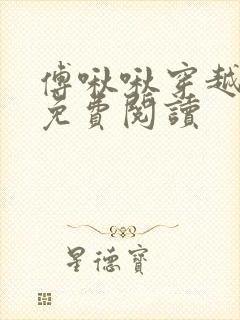 傅啾啾穿越
免費閱讀
星德寶